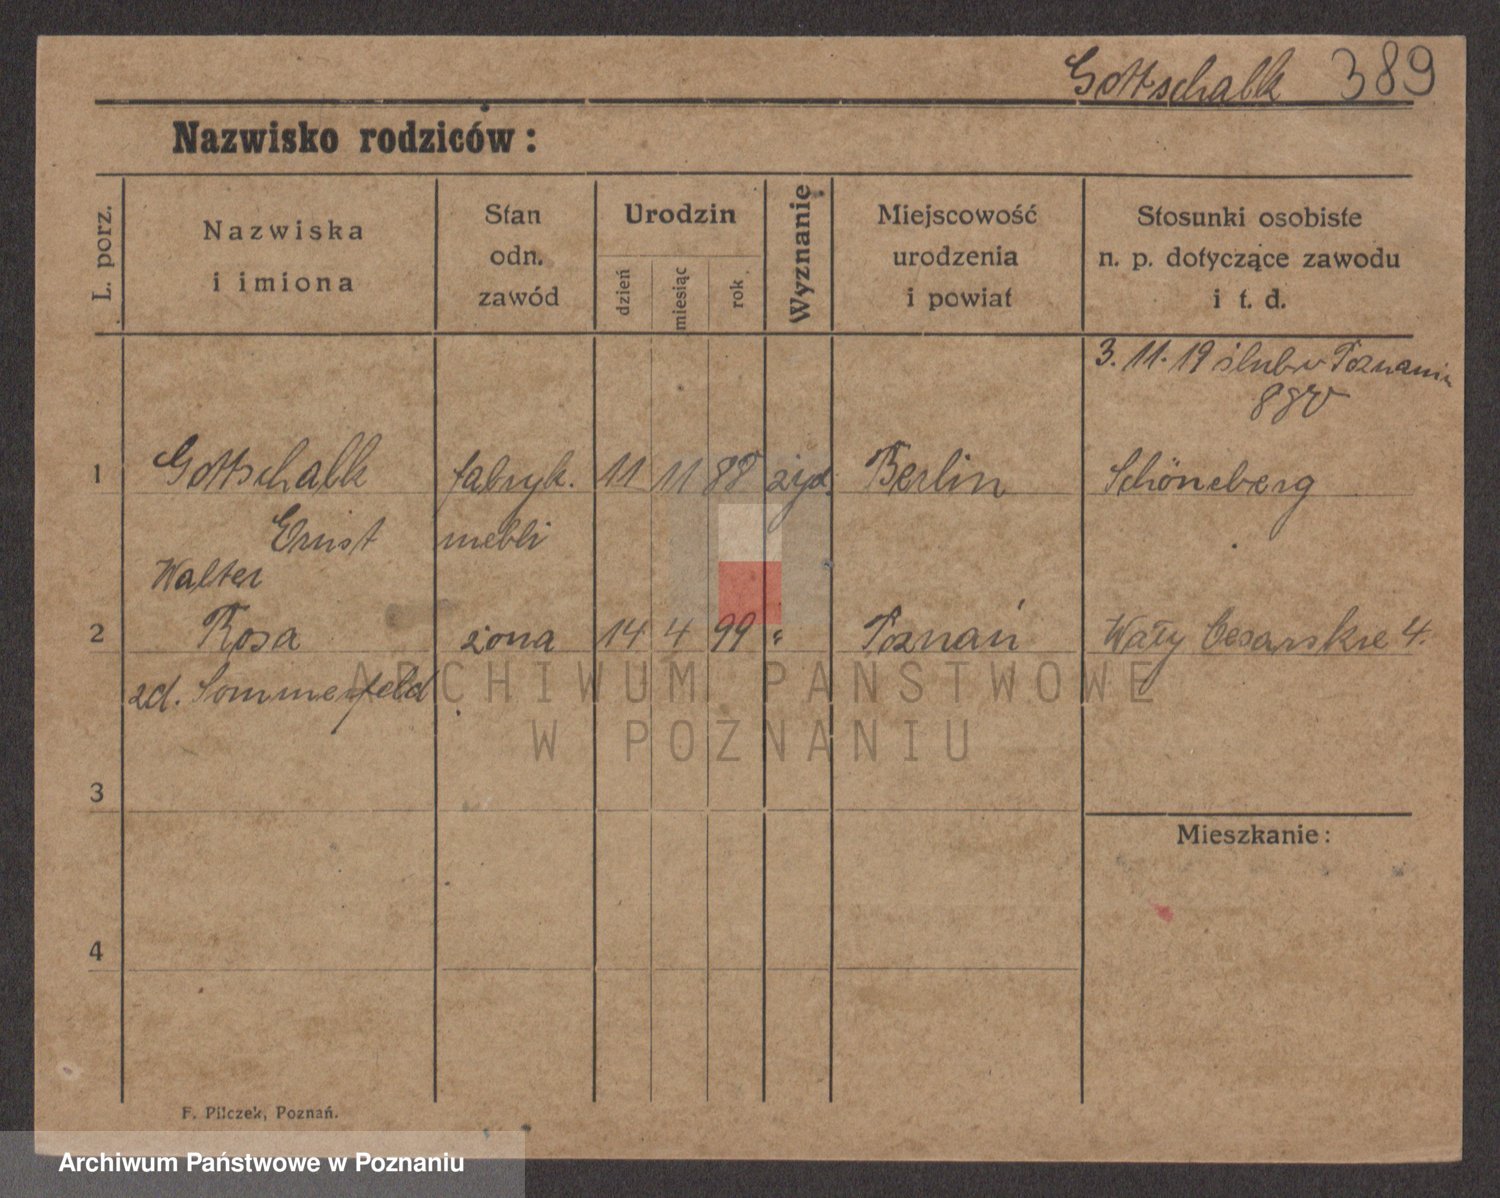 Gottschalk 389
Nazwisko rodziców:
L. porz.
Nazwiska
i imiona
Stan
odn.
zawód
Urodzin
dzień
miesiąc
rok
Wyznanie
Miejscowość
urodzenia
i powiat
Stosunki osobiste
n. p. dotyczące zawodu
i t. d.
3. 11. 19 ślub w Poznaniu
1 Gottschalk fabryk. 11 11 88 żyd. Berlin Schöneberg
Ernst mebli
Walter
2 Rosa żona 14 4 99 " Poznań Wały Cesarskie 4.
zd. Sommerfeld
ARCHIWUM PAŃSTWOWE
W POZNANIU
3
Mieszkanie:
4
F. Pilczek, Poznań.
Archiwum Państwowe w Poznaniu